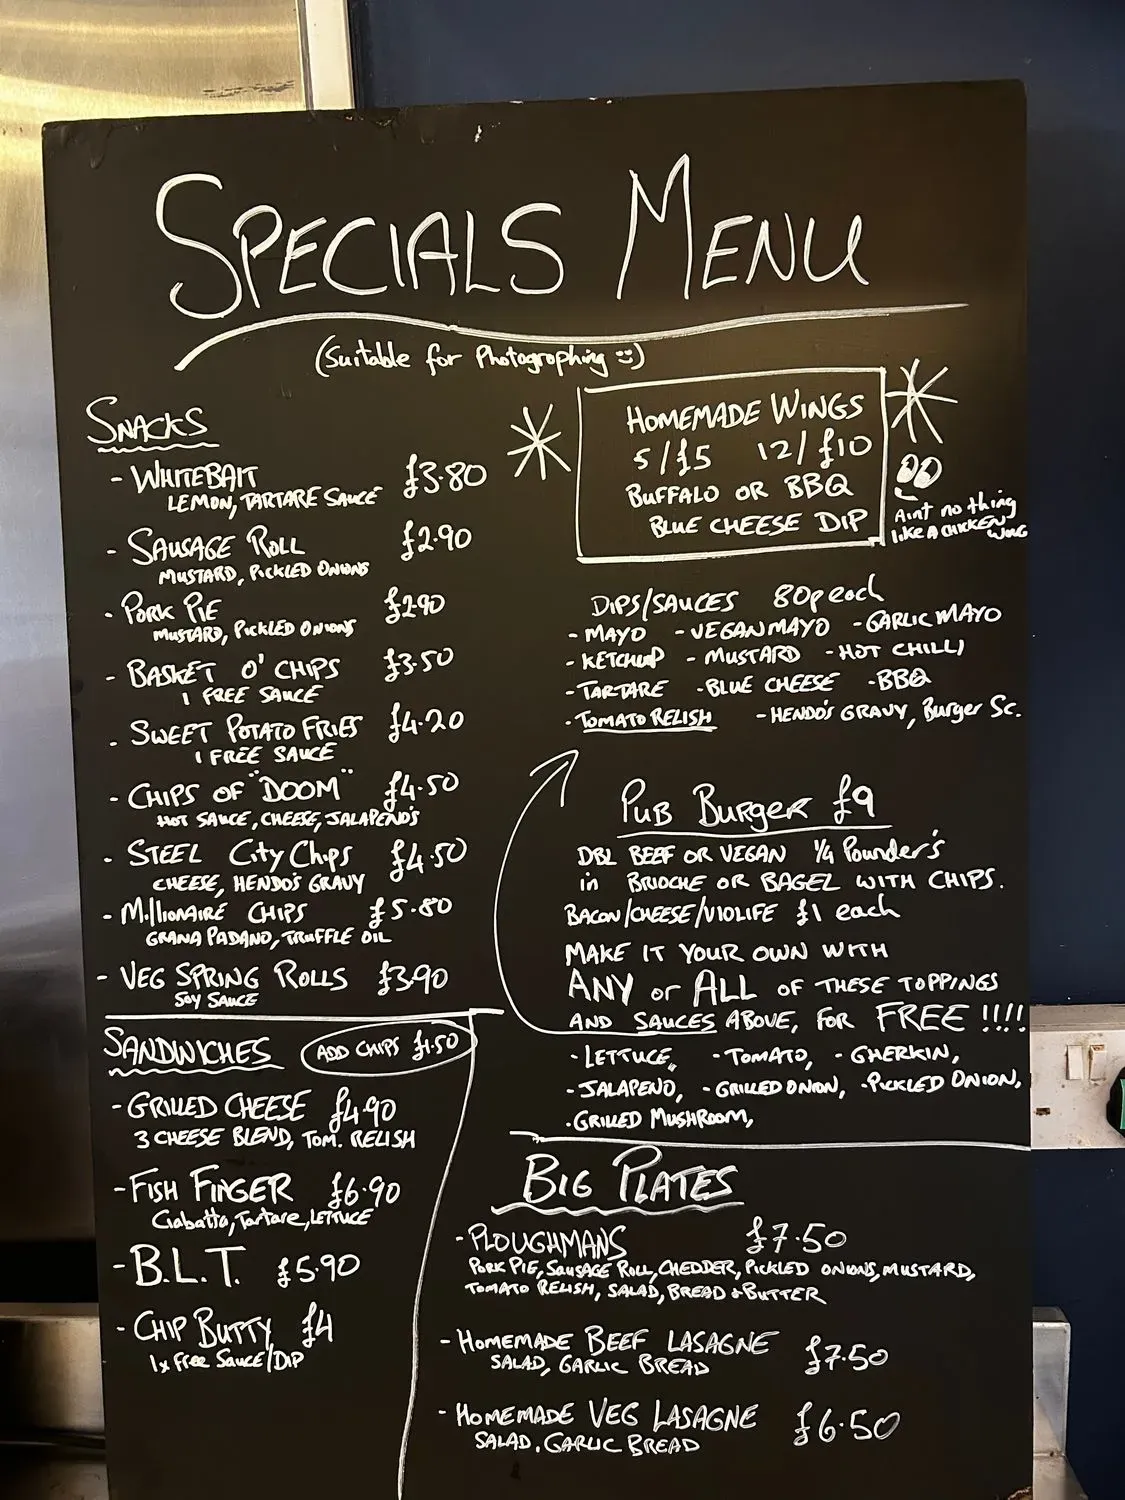 SPECIALS MENU
(Suitable for Photographing :))
SNACKS
- WHITEBAIT £3.80
LEMON, TARTARE SAUCE
- SAUSAGE ROLL £2.90
MUSTARD, PICKLED ONIONS
- PORK PIE £2.90
MUSTARD, PICKLED ONIONS
- BASKET O' CHIPS £3.50
1 FREE SAUCE
- SWEET POTATO FRIES £4.20
1 FREE SAUCE
- CHIPS OF "DOOM" £4.50
HOT SAUCE, CHEESE, JALAPENO'S
- STEEL City Chips £4.50
CHEESE, HENDO'S GRAVY
- MillIONAIRE CHIPS £5.80
GRANA PADANO, TRUFFLE OIL
- VEG SPRING ROLLS £3.90
SOY SAUCE
SANDWICHES ADD CHIPS £1.50
- GRILLED CHEESE £4.90
3 CHEESE BLEND, TOM. RELISH
- FISH FINGER £6.90
Ciabatta, Tartare, LETTUCE
- B.L.T. £5.90
- CHIP BUTTY £4
1x Free Sauce/DIP
HOMEMADE WINGS
5/£5 12/£10
BUFFALO OR BBQ
BLUE CHEESE DIP
Aint no thing
like A CHICKEN WING
DIPS/SAUCES 80p each
- MAYO - VEGAN MAYO - GARLIC MAYO
- KETCHUP - MUSTARD - HOT CHILLI
- TARTARE - BLUE CHEESE - BBQ
- TOMATO RELISH - HENDO'S GRAVY, Burger Sc.
PUB BURGER £9
DBL BEEF OR VEGAN 1/4 Pounder's
in BRIOCHE OR BAGEL WITH CHIPS.
BACON/CHEESE/VIOLIFE £1 each
MAKE IT YOUR OWN WITH
ANY or ALL OF THESE TOPPINGS
AND SAUCES ABOVE, FOR FREE !!!!
- LETTUCE, - TOMATO, - GHERKIN,
- JALAPENO, - GRILLED ONION, - PICKLED ONION,
- GRILLED MUSHROOM,
BIG PLATES
- PLOUGHMANS £7.50
PORK PIE, SAUSAGE ROLL, CHEDDER, PICKLED ONIONS, MUSTARD,
TOMATO RELISH, SALAD, BREAD & BUTTER
- HOMEMADE BEEF LASAGNE £7.50
SALAD, GARLIC BREAD
- HOMEMADE VEG LASAGNE £6.50
SALAD, GARLIC BREAD